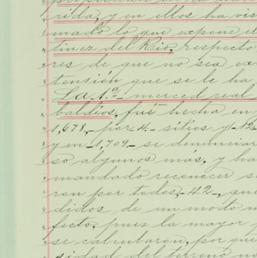 rida, y en ellos ha vis
mado lo que expone el
tinez del Rio, respecto
res de que no sea ex
tensión que se le ha
La 1ª merced real
baldíos, fué hecha en
1,678, por 4 sitios y 12
y en 1,709 se denunciar
so algunos mas, y ha
mandado reconocer se
ron por todos, 42, sue
didos de un modo
fecto, pues la mayor
se calcularon, por que